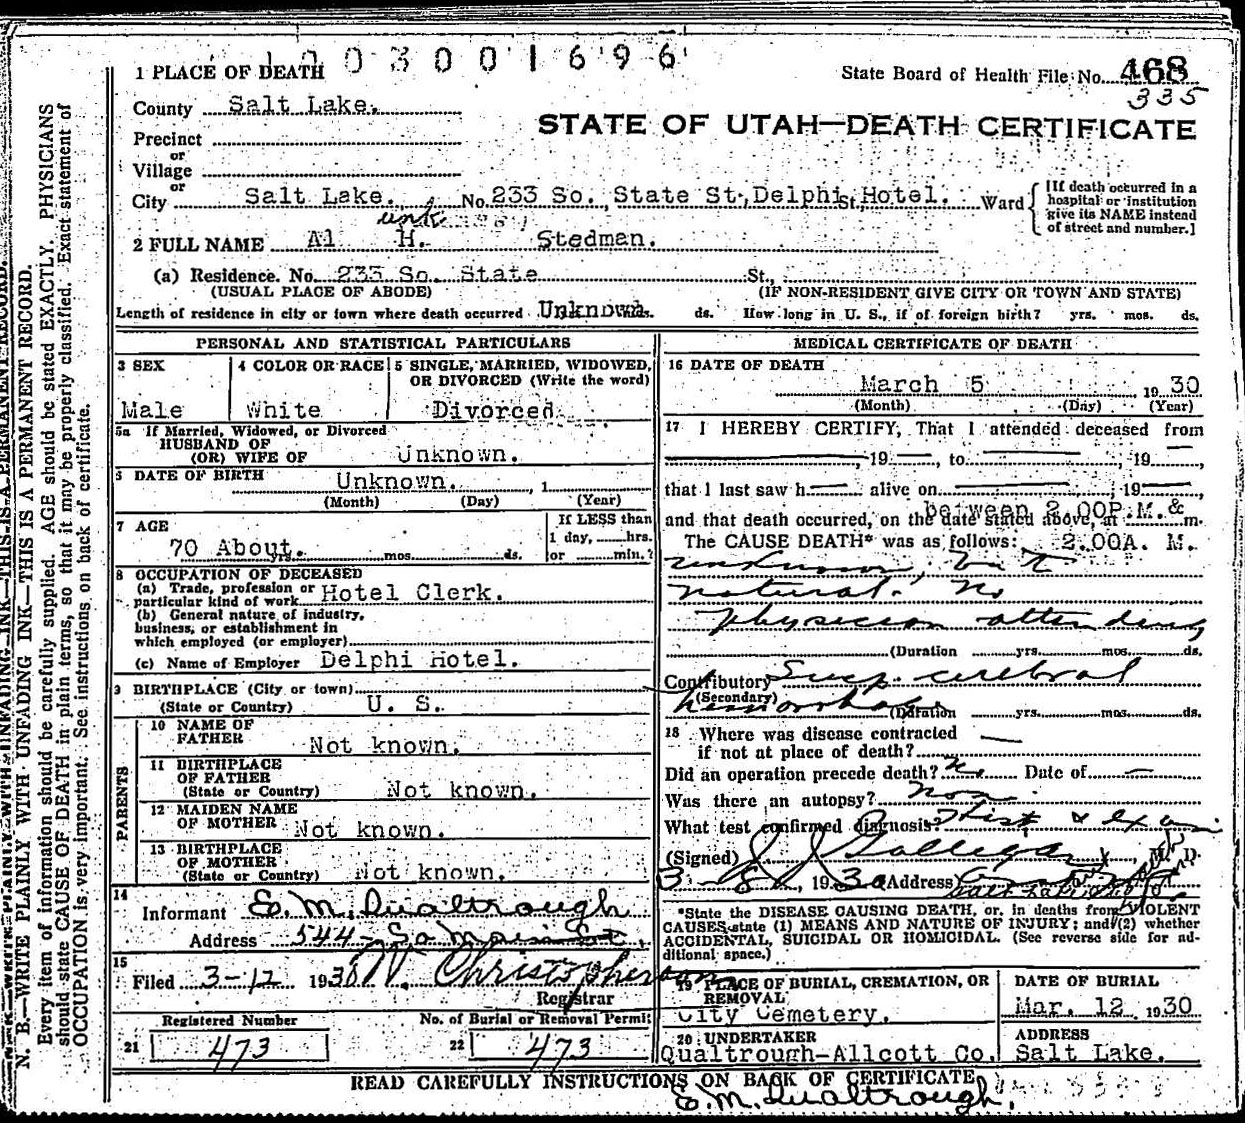 1 0 0 3 0 0 1 6 9 6
1 PLACE OF DEATH
State Board of Health File No. 468
335
County Salt Lake.
STATE OF UTAH—DEATH CERTIFICATE
Precinct
or
Village
or
City Salt Lake. No. 233 So. State St, Delphi St. Hotel. Ward
[If death occurred in a
hospital or institution
give its NAME instead
of street and number.]
unk.
2 FULL NAME Al H. Stedman.
(a) Residence. No. 233 So. State St.,
(USUAL PLACE OF ABODE) (IF NON-RESIDENT GIVE CITY OR TOWN AND STATE)
Length of residence in city or town where death occurred Unknown. ds. How long in U. S., if of foreign birth? yrs. mos. ds.
PERSONAL AND STATISTICAL PARTICULARS
3 SEX
Male
4 COLOR OR RACE
White
5 SINGLE, MARRIED, WIDOWED,
OR DIVORCED (Write the word)
Divorced
5a If Married, Widowed, or Divorced
HUSBAND OF
(OR) WIFE OF Unknown.
DATE OF BIRTH Unknown. , 1
(Month) (Day) (Year)
7 AGE
70 About. yrs. mos. ds.
If LESS than
1 day, hrs.
or min.?
8 OCCUPATION OF DECEASED
(a) Trade, profession or
particular kind of work Hotel Clerk.
(b) General nature of industry,
business, or establishment in
which employed (or employer)
(c) Name of Employer Delphi Hotel.
9 BIRTHPLACE (City or town)
(State or Country) U. S.
PARENTS
10 NAME OF
FATHER Not known.
11 BIRTHPLACE
OF FATHER
(State or Country) Not known.
12 MAIDEN NAME
OF MOTHER Not known.
13 BIRTHPLACE
OF MOTHER
(State or Country) Not known.
14
Informant E. M. Qualtrough
Address 544 So Main St.
15
Filed 3-12 1930 W. Christopherson
Registrar
Registered Number
21 473
No. of Burial or Removal Permit
22 473
MEDICAL CERTIFICATE OF DEATH
16 DATE OF DEATH
March 5 1930
(Month) (Day) (Year)
17 I HEREBY CERTIFY, That I attended deceased from
, 19 , to , 19 ,
that I last saw h alive on , 19 ,
between 2.00P.M.&
and that death occurred, on the date stated above, at m.
The CAUSE DEATH* was as follows: 2.00A. M.
unknown, but
natural. No
physician attending
(Duration yrs. mos. ds.
Contributory Susp. cerebral
(Secondary)
hemorrhage (Duration yrs. mos. ds.
18 Where was disease contracted
if not at place of death?
Did an operation precede death? No Date of —
Was there an autopsy? non
What test confirmed diagnosis? Hist & exam
(Signed) J J Galligan, M. D.
3-8, 1930 (Address)
*State the DISEASE CAUSING DEATH, or, in deaths from VIOLENT
CAUSES, state (1) MEANS AND NATURE OF INJURY; and (2) whether
ACCIDENTAL, SUICIDAL OR HOMICIDAL. (See reverse side for ad-
ditional space.)
19 PLACE OF BURIAL, CREMATION, OR
REMOVAL
City Cemetery.
DATE OF BURIAL
Mar. 12 1930
20 UNDERTAKER
Qualtrough-Allcott Co.
ADDRESS
Salt Lake.
READ CAREFULLY INSTRUCTIONS ON BACK OF CERTIFICATE
E. M. Qualtrough.
N. B.—WRITE PLAINLY WITH UNFADING INK—THIS IS A PERMANENT RECORD.
Every item of information should be carefully supplied. AGE should be stated EXACTLY. PHYSICIANS
should state CAUSE OF DEATH in plain terms, so that it may be properly classified. Exact statement of
OCCUPATION is very important. See instructions on back of certificate.